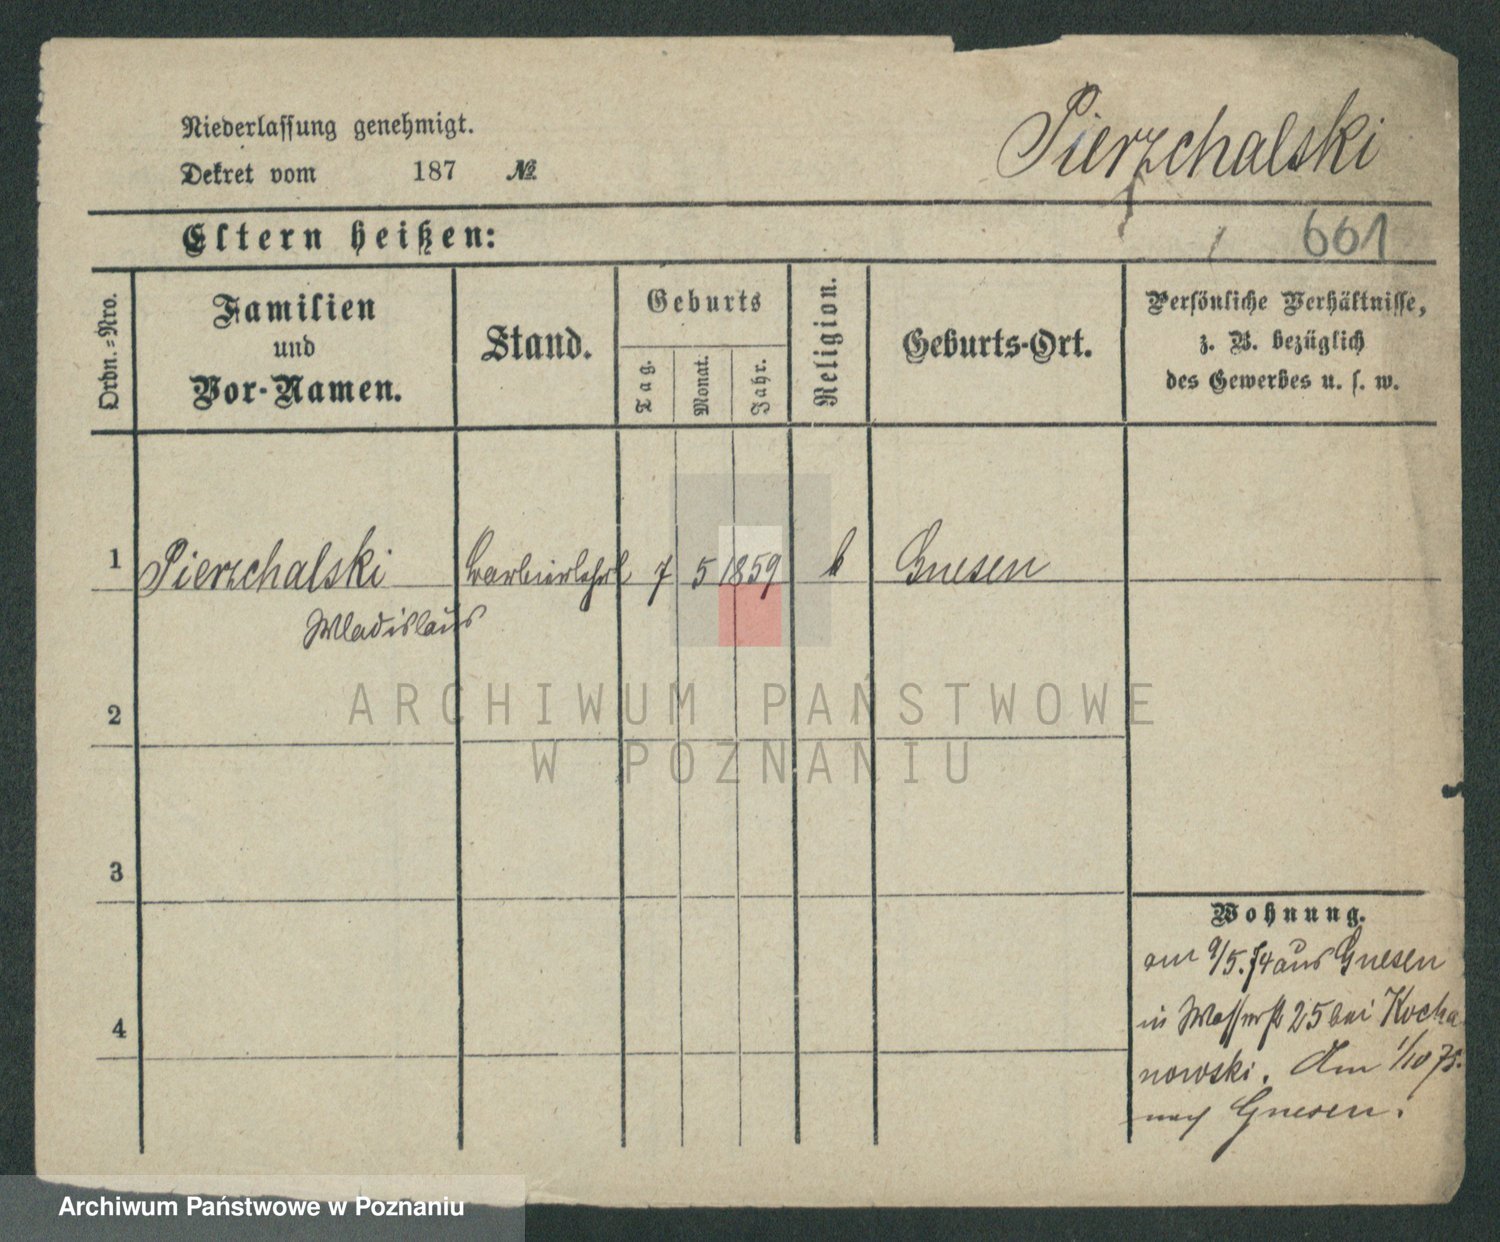 Niederlassung genehmigt.
Dekret vom 187 №
Pierzchalski
Eltern heißen:
661
Ordn.-Nro.
Familien
und
Vor-Namen.
Stand.
Geburts
Tag.
Monat.
Jahr.
Religion.
Geburts-Ort.
Persönliche Verhältnisse,
z. B. bezüglich
des Gewerbes u. s. w.
1 Pierzchalski Barbierlehrl 7 5 1859 k Gnesen
Wladislaus
2
3
4
Wohnung.
am 9/5. 74 aus Gnesen
in Wasserstr 25 bei Kocha
nowski. Am 1/10 75.
nach Gnesen.
ARCHIWUM PAŃSTWOWE
W POZNANIU
Archiwum Państwowe w Poznaniu